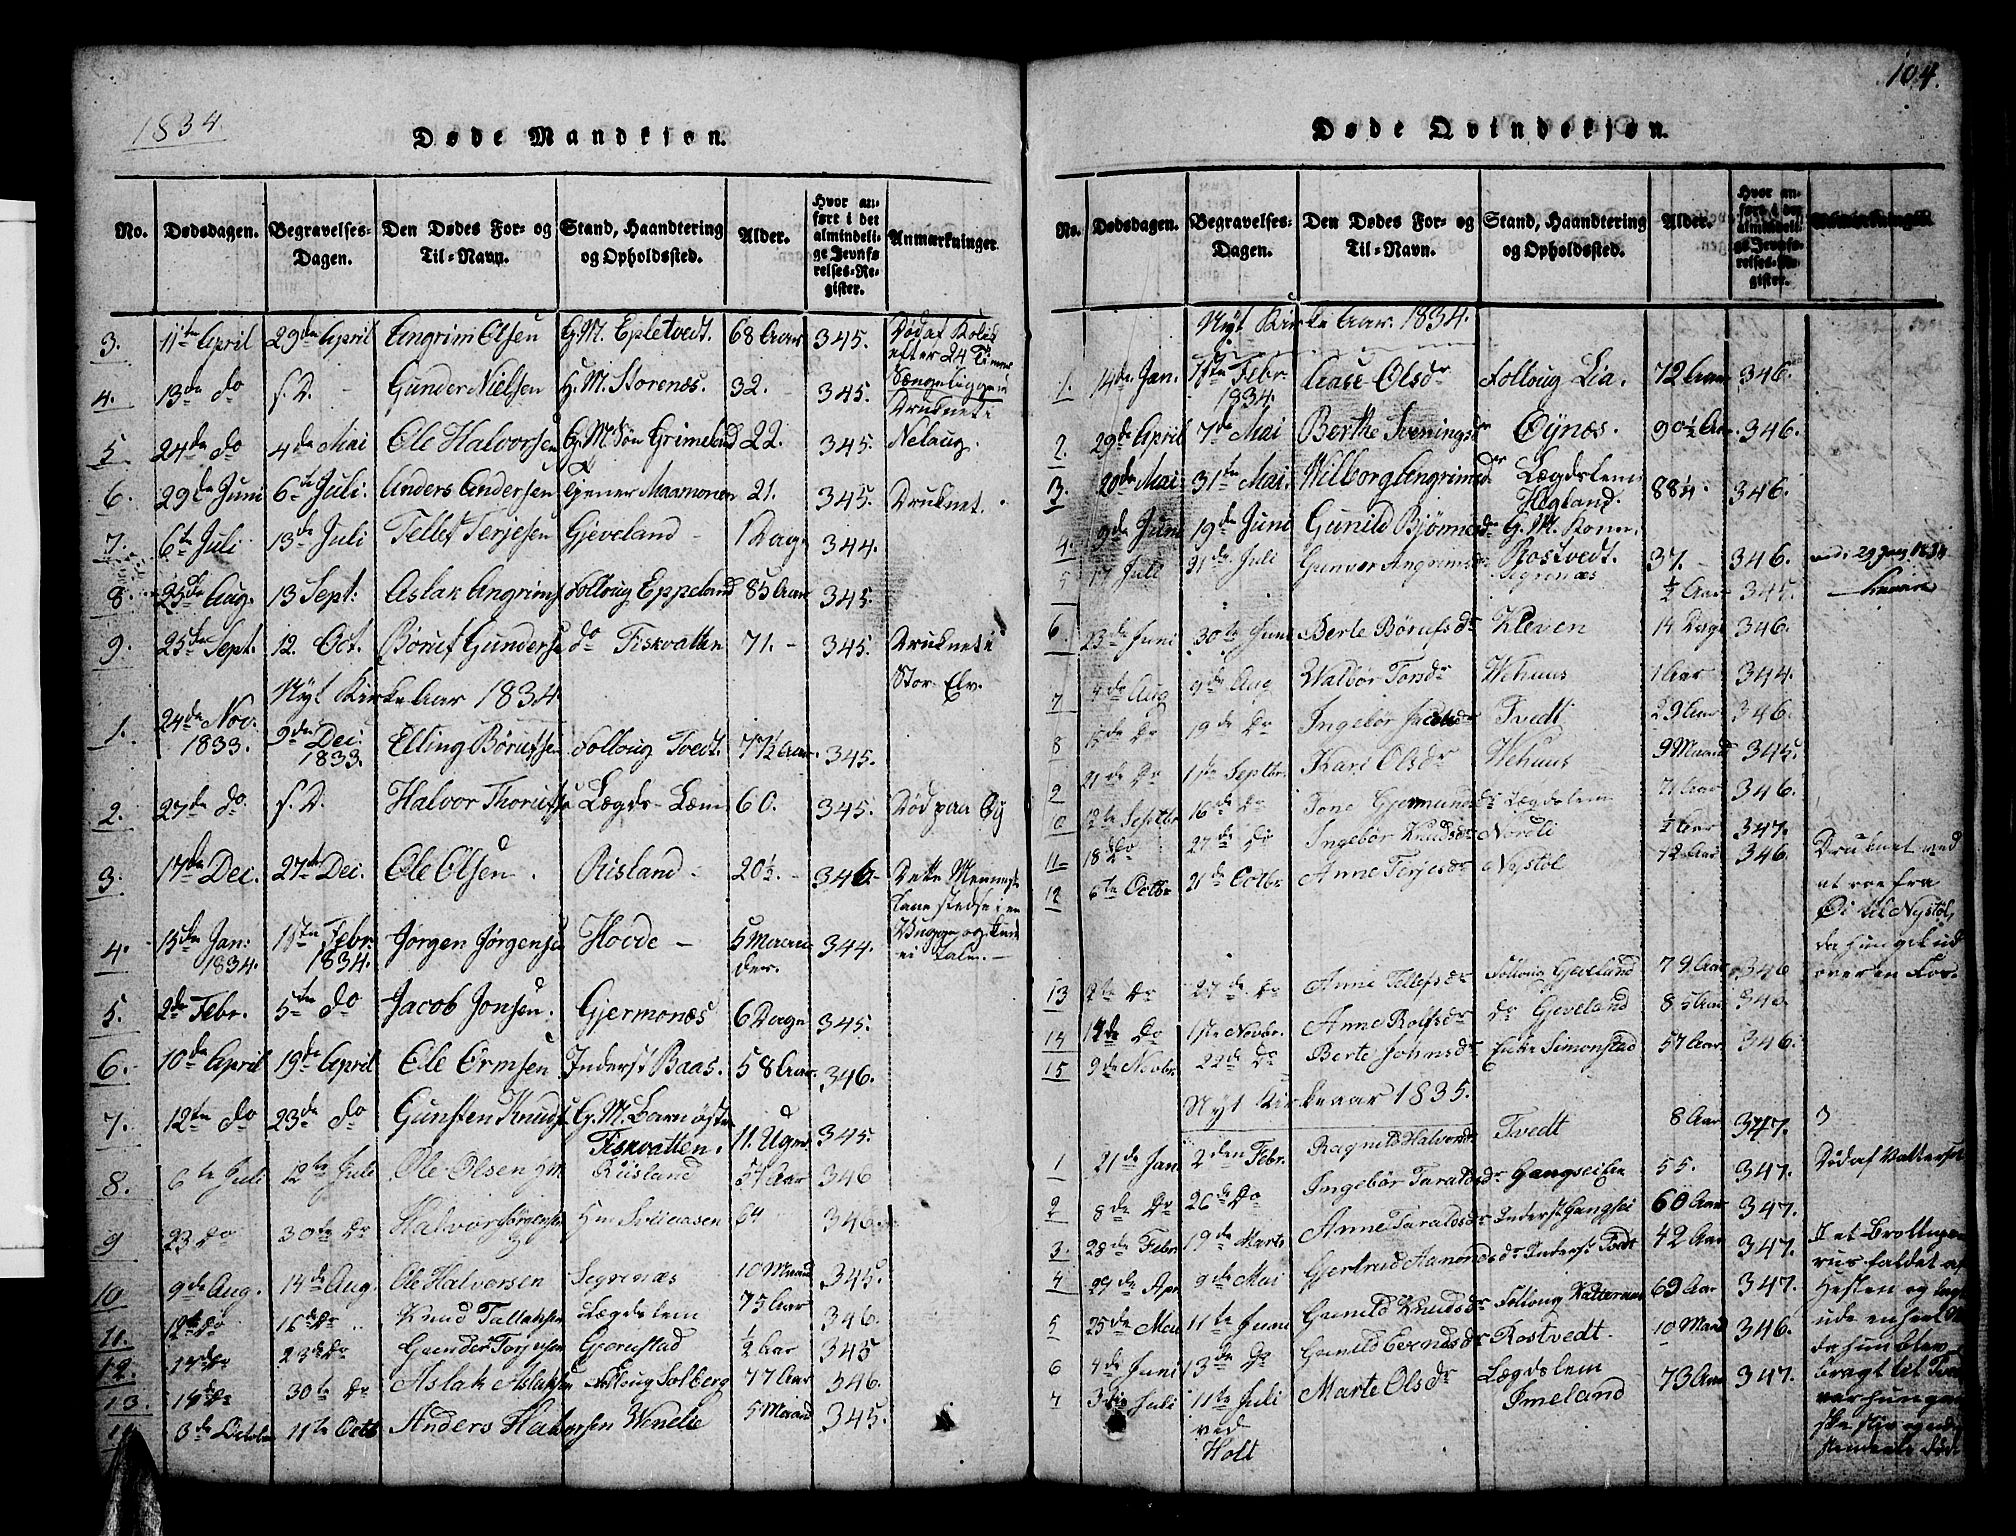 1834
Døde Mandkiøn.
No. Dødsdagen. Begravelses-Dagen. Den Dødes For- og Til-Navn. Stand, Haandtering og Opholdssted. Alder. Hvor anført i det almindelige Jevnførelses-Register. Anmærkninger
3. 11te April 29de April Angrim Olsen G.M. Epletvedt. 68 Aar 345. Død af Kolik efter 24 Timer Sængeliggen
4. 13de do s. D. Gunder Nielsen G.M. Storenæs. 32. 345. Druknet i
5. 24de do 4de Mai Ole Halvorsen G.M. Søn Grimeland 22. 345. Nelaug.
6. 29de Juni 6te Juli. Anders Andersen Tjener Maamonen 21. 345. Druknet.
7. 6te Juli 13de Juli Tellef Terjesen Gjeveland 1 Dage 344.
8. 25de Aug. 13 Sept: Aslak Angrims Folloug Eppeland 85 Aar 345.
9. 25te Sept. 12. Oct. Børuf Gunders do Fiskvatten 71. 345. Druknet i Stor-Elv.
Nyt Kirke Aar 1834
1. 24de Nov. 1833. 9de Dec. 1833. Elling Børufsen Folloug Tvedt. 77½ Aar 345.
2. 27de do s. D. Halvor Thorufs Lægds-Lem 60. 345. Død paa Øy
3. 17de Dec. 27de Dec. Ole Olsen. Risland 20½. 346. Dette Menneske laae stedse i en Vugge og kunde ei tale.
4. 15de Jan: 1834. 15te Febr. 1834. Jørgen Jørgens Hovde 5 Maaneder. 344.
5. 2de Febr. 5te do Jacob Jonsen. Gjermonæs 6 Dage 345.
6. 10de April 19de April Ole Ormsen Inderst Baas. 58 Aar 346.
7. 12te do 23de do Gunsten Knuds G.M. Barn østre Fiskvatten. 11. Uger 345.
8. 6te Juli 12te Juli Ole Olsen Riisland 57 Aar 346
9 23 Do 30te Do Halvor Jørgensen 64 346
10 9de Aug. 17de Aug. Ole Halvorsen Segrenæs 10 Maand 345.
11. 12te Do 16de Do Knud Tallaksen Lægdslem 75 Aar 346.
12. 17de Do 23de Do Gunder Terjesen Gjerustad ½ Aar 345
13. 17de Do 30te Do Aslak Aslaksen Follaug Solberg 77 Aar 346.
3de Octbr 11te Octb Anders Halvorsen Wenelie 5 Maand 345.
104.
Døde Qvindekjøn.
No. Dødsdagen. Begravelses-Dagen. Den Dødes For- og Til-Navn. Stand, Haandtering og Opholdssted. Alder. Hvor anført i det almindelige Jevnførelses-Register. Anmærkninger.
Nyt Kirke Aar. 1834.
1. 14de Jan. 15te Febr. 1834. Aase Olsdr Folloug Lia. 72 Aar 346.
2. 29de April 7de Mai Berthe Sveningsdr Øynæs. 90½ Aar. 346.
3. 20de Mai 31te Mai. Wilborg Angrimsdr Lægdslem Hegland. 88¼. 346.
4. 9de Juni 19de Juni Gunild Bjørnsdr G.M. Kone Rostvedt. 37. 346.
5 17 Juli 31de Juli Gunvor Angrimsdr Segrenæs ½ Aar 345.
6 23de Juni 30te Juni Berte Børufsdr Kleven 14 Dage 346.
7 4de Aug 9de Aug Walbør Torsdr Wehuus 1 Aar 344.
8 15de Do 19de Do Ingebør Jacobsdr Tvedt 29 Aar 346.
21de Do 11te Septbr. Kari Olsdr Wehuus 9 Maand 345.
12te Septbr 16de Do Tone Gjermundsdr Lægdslem 71 Aar 346.
11 18 Do 27de Do Ingebør Knudsdr Nordli ½ Aar 347.
12 6te Octbr 21de Octbr Anne Terjesdr Nystøl 12 Aar 346. Druknet ved at roe fra Øi til Nystøl, da hun gik ud over en Fos.
13 2te Do 27de Do Anne Tellefsdr Follaug Gjeveland 79 Aar 346
14 12de Do 1ste Novbr. Anne Rolfsdr do Gjeveland 85 Aar 346.
15 9de Novbr. 22de Do Berte Johnsdr Enke Simonstad 57 Aar 346.
Nyt Kirkeaar 1835.
1 21de Jan. 2den Febr. Ragnild Halvorsdr Tvedt 8 Aar 347.
2 8de Do 26de Do Ingebør Taraldsdr Gangsei 55. 347. Død af Vattersot
3. 28de Febr 19de Marts Anne Taraldsdr Inderst Gangsei 60 Aar 347.
4 29de Apr 9de Mai Gjertrud Aamondsdr Inderst Tvedt 42 Aar 347. I et Brollup var faldet af Hesten og
5 25de Mai 11te Juni Gunild Knudsdr Follaug Vatternæs 69 Aar 347.
6 4de Juni 13de Do Gunild Evensdr Rostvedt. 10 Maand 346. da hun blev bragt til
7 3die Juli 11te Juli ved Holt Marte Olsdr Lægdslem Imeland 73 Aar 347.